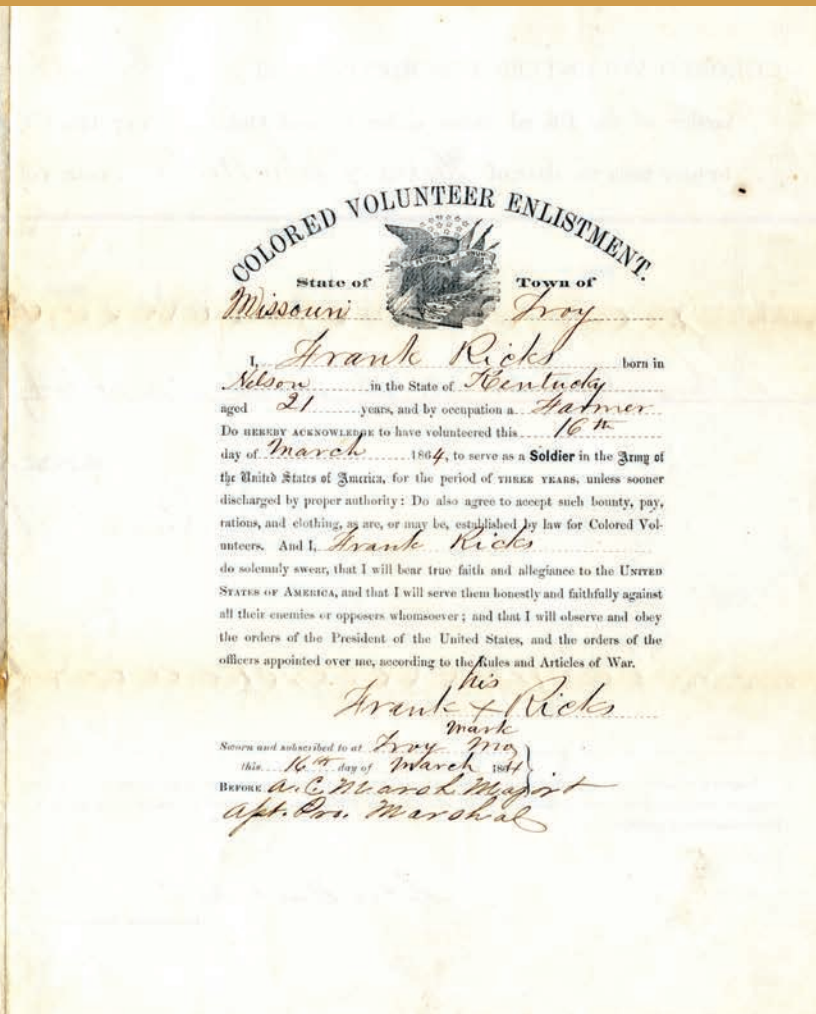 COLORED VOLUNTEER ENLISTMENT.
State of Town of
Missouri Troy
I, Frank Ricks born in
Nelson in the State of Kentucky
aged 21 years, and by occupation a Farmer
Do HEREBY ACKNOWLEDGE to have volunteered this 16th
day of March 1864, to serve as a Soldier in the Army of
the United States of America, for the period of THREE YEARS, unless sooner
discharged by proper authority: Do also agree to accept such bounty, pay,
rations, and clothing, as are, or may be, established by law for Colored Vol-
unteers. And I, Frank Ricks
do solemnly swear, that I will bear true faith and allegiance to the UNITED
STATES OF AMERICA, and that I will serve them honestly and faithfully against
all their enemies or opposers whomsoever; and that I will observe and obey
the orders of the President of the United States, and the orders of the
officers appointed over me, according to the Rules and Articles of War.
his
Frank X Ricks
mark
Sworn and subscribed to at Troy Mo
this 16th day of March 1864
BEFORE A. C. Marsh Major &
Pro. Marshal